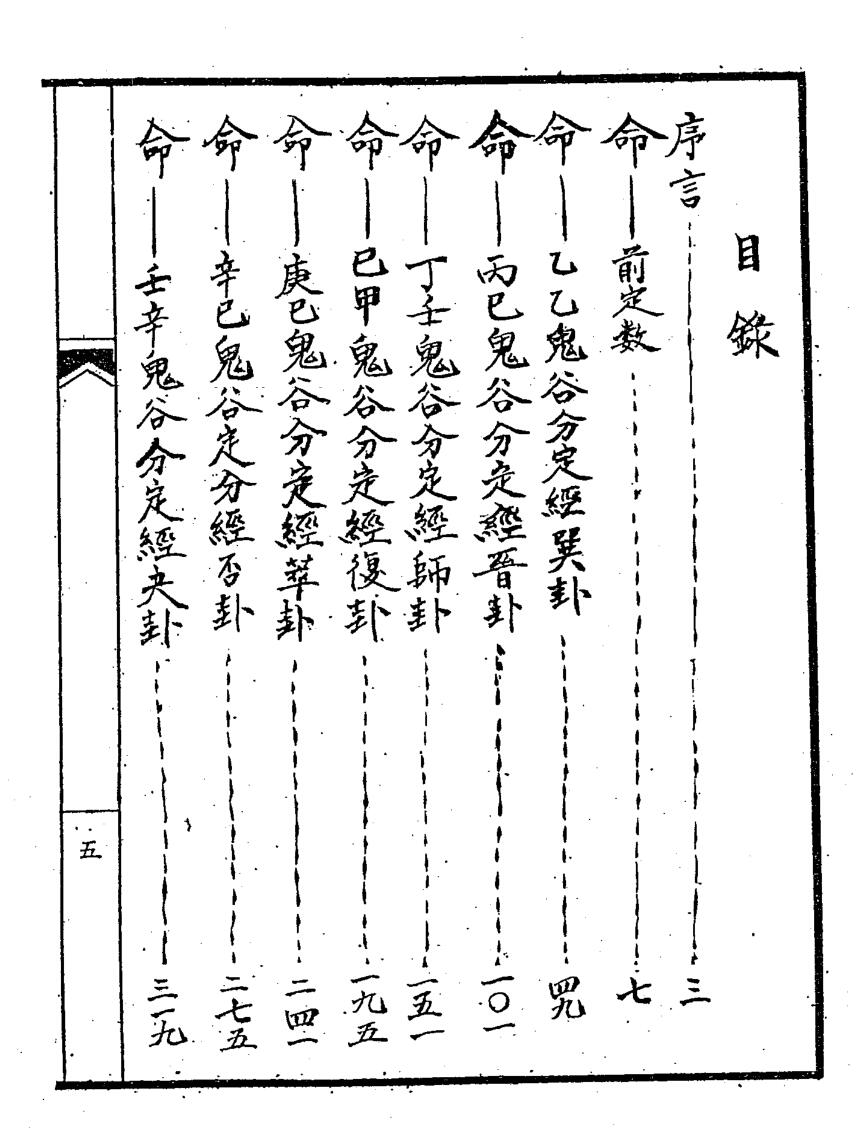 目錄
序言 三
命——前定数 七
命——乙乙鬼谷分定經巽卦 四九
命——丙巳鬼谷分定經晉卦 一〇一
命——丁壬鬼谷分定經師卦 一五一
命——巳甲鬼谷分定經復卦 一九五
命——庚巳鬼谷分定經萃卦 二四一
命——辛巳鬼谷定分經否卦 二七五
命——壬辛鬼谷分定經夬卦 三一九
五